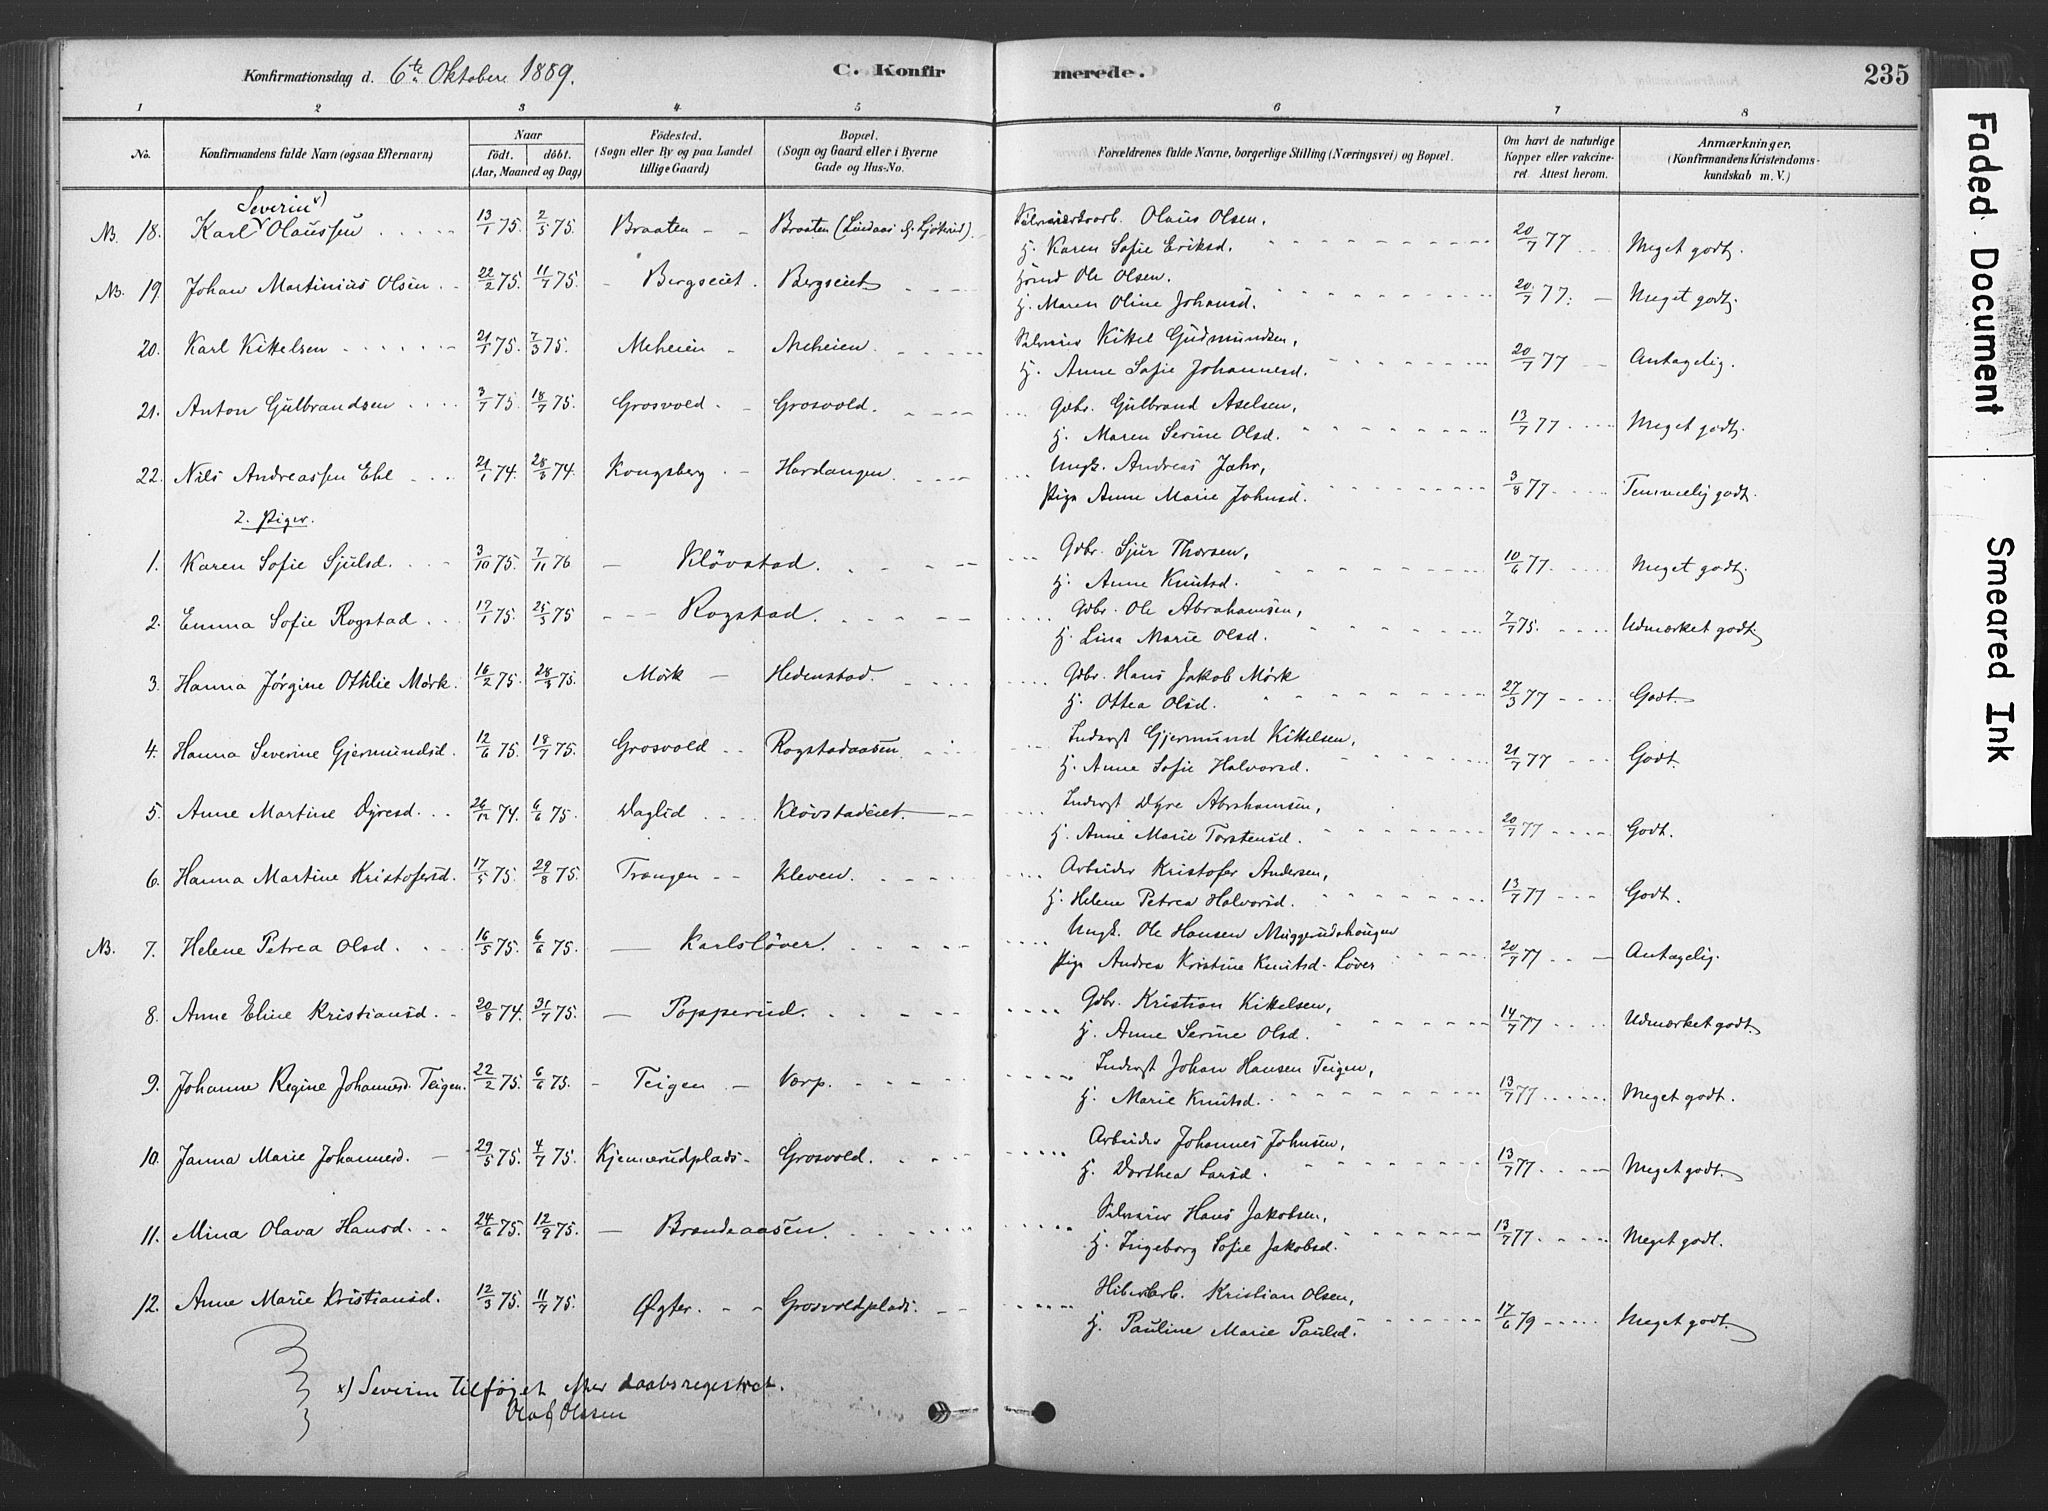 Konfirmationsdag d. 6te Oktober 1889. C. Konfirmerede. 235
1 2 3 4 5 6 7 8
No.
Konfirmandens fulde Navn (ogsaa Efternavn)
Naar
födt. döbt.
(Aar, Maaned og Dag)
Födested.
(Sogn eller By og paa Landet
tillige Gaard)
Bopæl.
(Sogn og Gaard eller i Byerne
Gade og Hus-No.
Forældrenes fulde Navne, borgerlige Stilling (Næringsvei) og Bopæl.
Om havt de naturlige
Kopper eller vakcine-
ret Attest herom.
Anmærkninger,
(Konfirmandens Kristendoms-
kundskab m. V.)
Severin x)
NB. 18. Karl Olaussen 13/1 75. 2/5 75. Braaten Braaten Olaus Olsen,
Hj. Karen Sofie Eriksd. 20/7 77 Meget godt.
NB. 19. Johan Martinius Olsen 22/2 75. 11/7 75. Bergseiet. Bergseiet Ole Olsen.
Hj. Maren Oline Johansd. 20/7 77. Meget godt.
20. Karl Kittelsen 21/1 75. 7/3 75. Meheien Meheien. Kittel Gudmundsen,
Hj. Anne Sofie Johannesd. 20/7 77 Antagelig.
21. Anton Gulbrandsen 3/1 75. 18/7 75. Grosvold Grosvold. Gdbr. Gulbrand Axelsen,
Hj. Maren Serine Olsd. 13/7 77 Meget godt.
22. Nils Andreassen 21/1 74. 28/3 74. Kongsberg Hardangen. Ungk. Andreas Jahr,
Pige Anne Marie Johnsd. 3/8 77 Temmelig godt.
2. Piger.
1. Karen Sofie Sjulsd. 3/10 75. 7/11 76 Kløvstad. Gdbr. Sjur Thorsen,
Hj. Anne Knutsd. 10/6 77 Meget godt.
2. Emma Sofie Rogstad 17/1 75. 25/3 75 Rogstad Gdbr. Ole Abrahamsen,
Hj. Lina Marie Olsd. 7/7 75. Udmærket godt.
3. Hanna Jørgine Othilie Mørk. 16/2 75. 28/3 75. Mørk Hedenstad. Gdbr. Hans Jakob Mørk
Hj. Ottea Olsd. 27/3 77 Godt.
4. Hanna Severine Gjermundsd. 12/6 75. 18/7 75. Grosvold Rogstadaasen Inderst Gjermund Kittelsen,
Hj. Anne Sofie Halvorsd. 21/7 77 Godt.
5. Anne Martine Dyresd. 26/12 74. 6/6 75. Daglid Kløvstadeiet. Inderst Dyre Abrahamsen,
Hj. Anne Marie Torstensd. 20/7 77 Godt.
6. Hanna Martine Kristofersd. 17/5 75. 29/8 75. Trangen Kleven. Arbeider Kristofer Andersen,
Hj. Helene Petrea Halvorsd. 13/7 77 Godt.
NB. 7. Helene Petrea Olsd. 16/5 75. 6/6 75. Karlsløver. Ungk. Ole Hansen Muggerudshaugen
Pige Andrea Kristine Knutsd. Løver 20/7 77 Antagelig.
8. Anne Eline Kristiansd. 20/8 74. 31/7 75. Popperud. Gdbr. Kristian Kittelsen,
Hj. Anne Serine Olsd. 14/7 77 Udmærket godt.
9. Johanne Regine Johannesd. Teigen. 22/2 75. 6/6 75. Teigen Vorp. Inderst Johan Hansen Teigen,
Hj. Marie Knutsd. 13/7 77 Meget godt.
10. Janna Marie Johannesd. 29/5 75. 4/7 75. Kjennerudplads Grosvold. Arbeider Johannes Johnsen,
Hj. Dorthea Larsd. 13/7 77 Meget godt.
11. Mina Olava Hansd. 24/6 75. 12/9 75. Brandaaasen Hans Jakobsen,
Hj. Ingeborg Sofie Jakobsd. 13/7 77 Meget godt.
12. Anne Marie Kristiansd. 12/3 75. 11/7 75. Øgter. Grosvoldplads. Kristian Olsen,
Hj. Pauline Marie Paulsd. 17/6 79 Meget godt.
x) Severin tilføjet efter daabsregistret.
Olaf Olssen
Faded Document
Smeared Ink